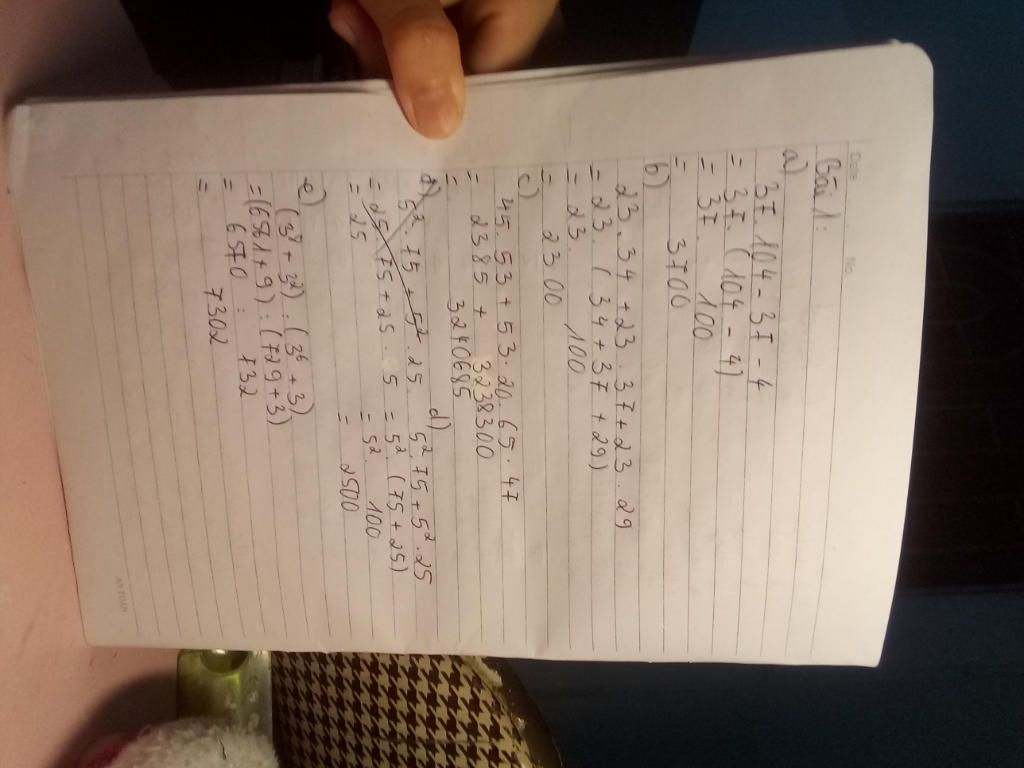 Date No
Bài 1:
a)
37.104 - 37 - 4
= 37.(104 - 4)
= 37. 100
= 3700
b)
23.34 + 23.37 + 23.29
= 23.(34 + 37 + 29)
= 23. 100
= 2300
c)
45.53 + 53.20.65.47
= 2385 + 3238300
= 3240685
d) 5².75 + 5² 25.
= 25.75 + 25. 5
= 25
d) 5² 75 + 5².25
= 5² (75 + 25)
= 5². 100
= 2500
e)
(3⁸ + 3²) : (3⁶ + 3)
= (6561 + 9) : (729 + 3)
= 6570 : 732
= 7302